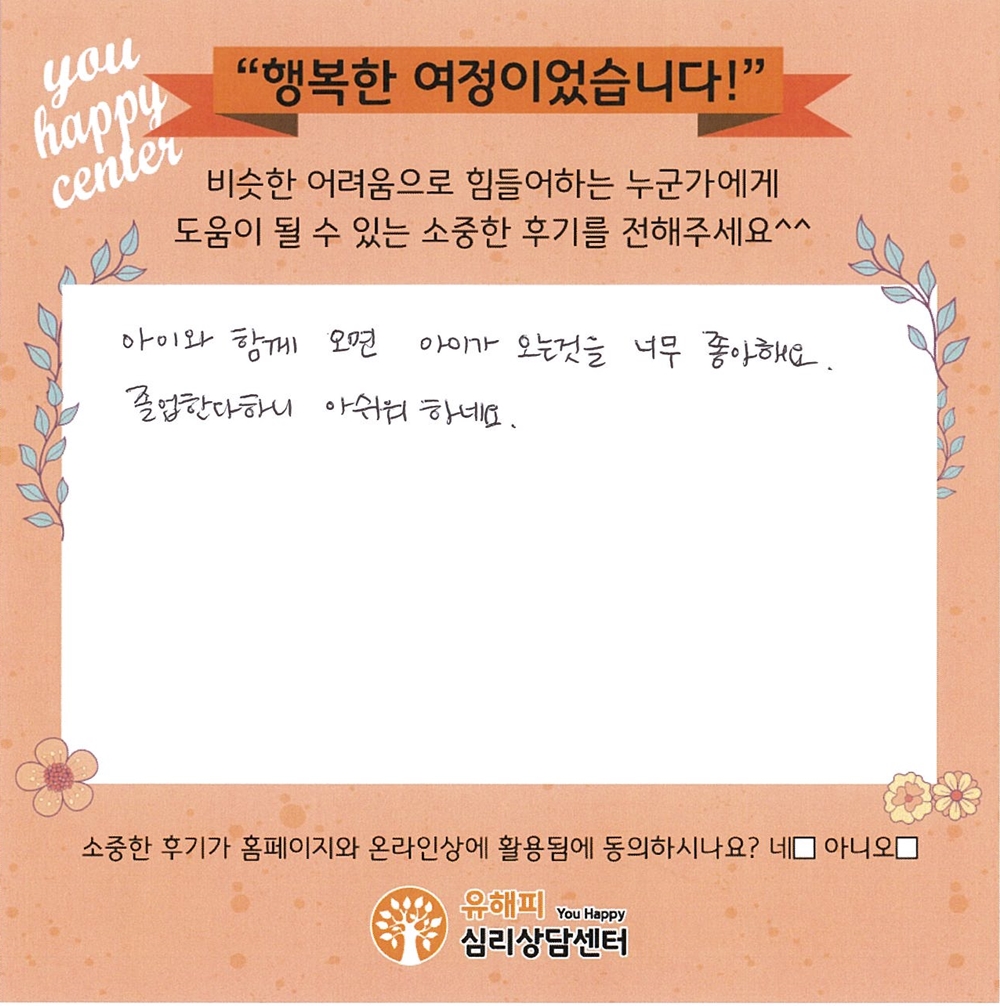 you
happy
center
“행복한 여정이었습니다!”
비슷한 어려움으로 힘들어하는 누군가에게
도움이 될 수 있는 소중한 후기를 전해주세요^^
아이와 함께 오면 아이가 오는것을 너무 좋아해요.
졸업한다하니 아쉬워 하네요.
소중한 후기가 홈페이지와 온라인상에 활용됨에 동의하시나요? 네□ 아니오□
유해피 You Happy
심리상담센터